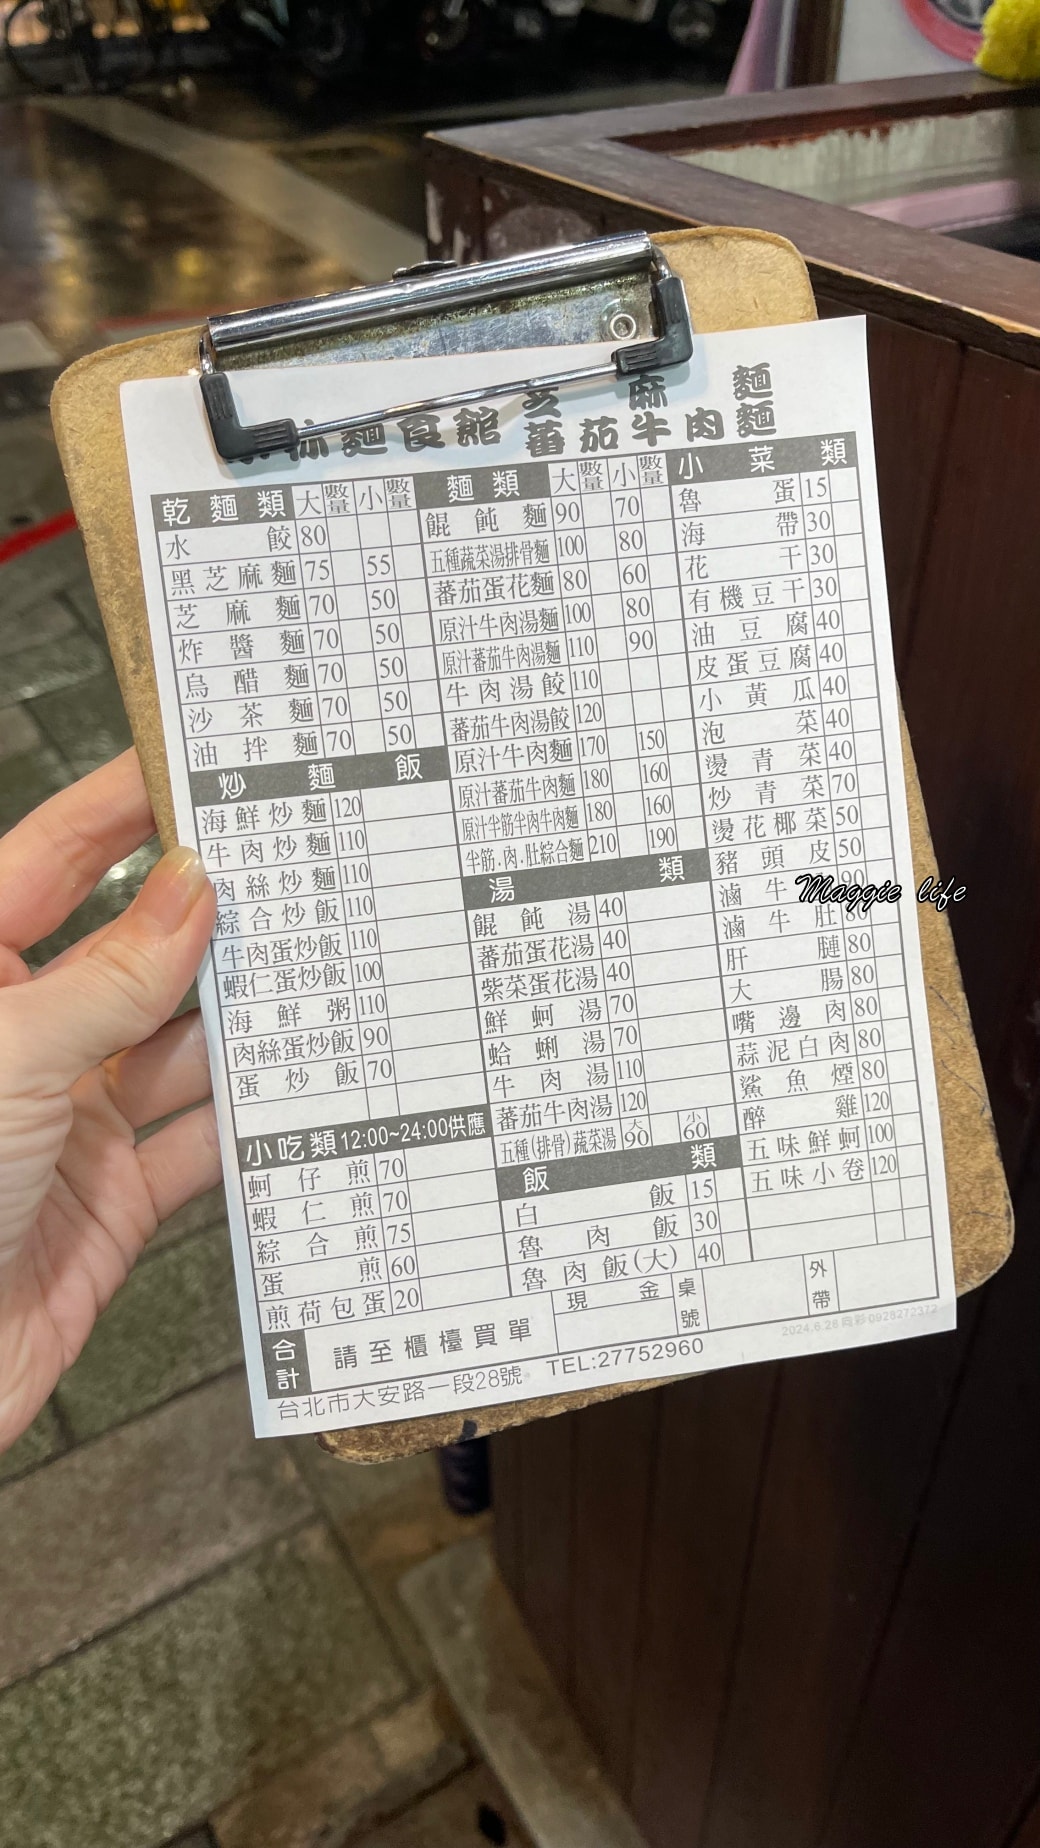 麻 麵
麵食館 蕃茄牛肉麵
乾麵類 大 數量 小 數量
水餃 80
黑芝麻麵 75 55
芝麻麵 70 50
炸醬麵 70 50
烏醋麵 70 50
沙茶麵 70 50
油拌麵 70 50
炒麵飯
海鮮炒麵 120
牛肉炒麵 110
肉絲炒麵 110
綜合炒飯 110
牛肉蛋炒飯 110
蝦仁蛋炒飯 100
海鮮粥 110
肉絲蛋炒飯 90
蛋炒飯 70
小吃類 12:00~24:00供應
蚵仔煎 70
蝦仁煎 70
綜合煎 75
蛋煎 60
煎荷包蛋 20
麵類 大 數量 小 數量
餛飩麵 90 70
五種蔬菜湯排骨麵 100 80
蕃茄蛋花麵 80 60
原汁牛肉湯麵 100 80
原汁蕃茄牛肉湯麵 110 90
牛肉湯餃 110
蕃茄牛肉湯餃 120
原汁牛肉麵 170 150
原汁蕃茄牛肉麵 180 160
原汁半筋半肉牛肉麵 180 160
半筋.肉.肚綜合麵 210 190
湯類
餛飩湯 40
蕃茄蛋花湯 40
紫菜蛋花湯 40
鮮蚵湯 70
蛤蜊湯 70
牛肉湯 110
蕃茄牛肉湯 120
五種(排骨)蔬菜湯 大90 小60
飯類
白飯 15
魯肉飯 30
魯肉飯(大) 40
小菜類
魯蛋 15
海帶 30
花干 30
有機豆干 30
油豆腐 40
皮蛋豆腐 40
小黃瓜 40
泡菜 40
燙青菜 40
炒青菜 70
燙花椰菜 50
豬頭皮 50
滷牛 90
滷牛肚
肝膁 80
大腸 80
嘴邊肉 80
蒜泥白肉 80
鯊魚煙 80
醉雞 120
五味鮮蚵 100
五味小卷 120
合計 請至櫃檯買單 現金 桌號 外帶
台北市大安路一段28號 TEL:27752960
2024.6.26 同彩 0928272372
Maggie life